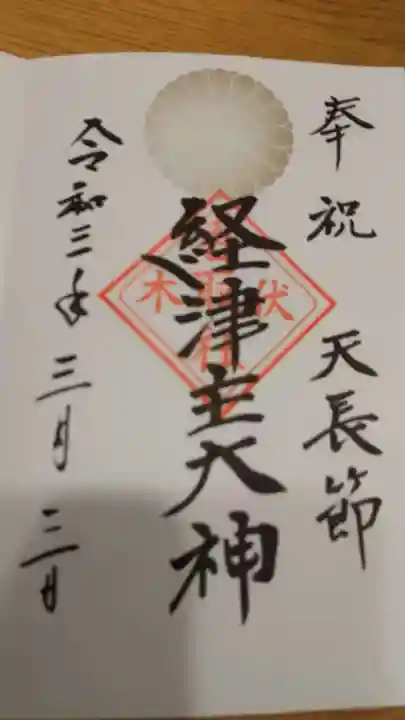 奉祝 天長節
経津主大神
令和三年三月三日
木
伏